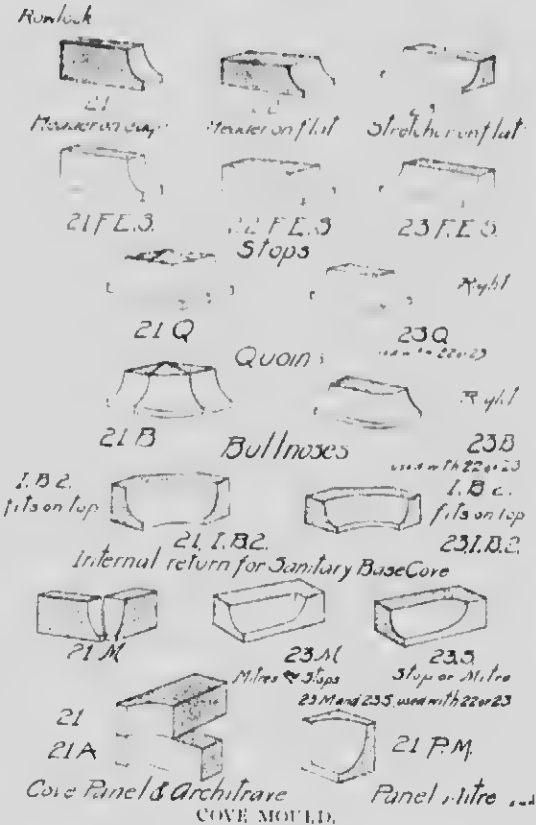 Rowlock
21
Header on edge Header on flat Stretcher on flat
21 F.E.S. 22 F.E.S 23 F.E.S.
Stops
Right
21 Q 23 Q
Quoins used with 22 or 23
Right
21 B 23 B
Bullnoses used with 22 or 23
I.B 2. I.B 2.
fits on top fits on top
21, I.B.2. 23, I.B.2.
Internal return for Sanitary Base Cove
21 M 23 M 23.S.
Mitres & Stops Stop or Mitre
23 M and 23 S, used with 22 or 23
21
21 A 21 P.M.
Cove Panel & Architrave Panel Mitre
COVE MOULD.